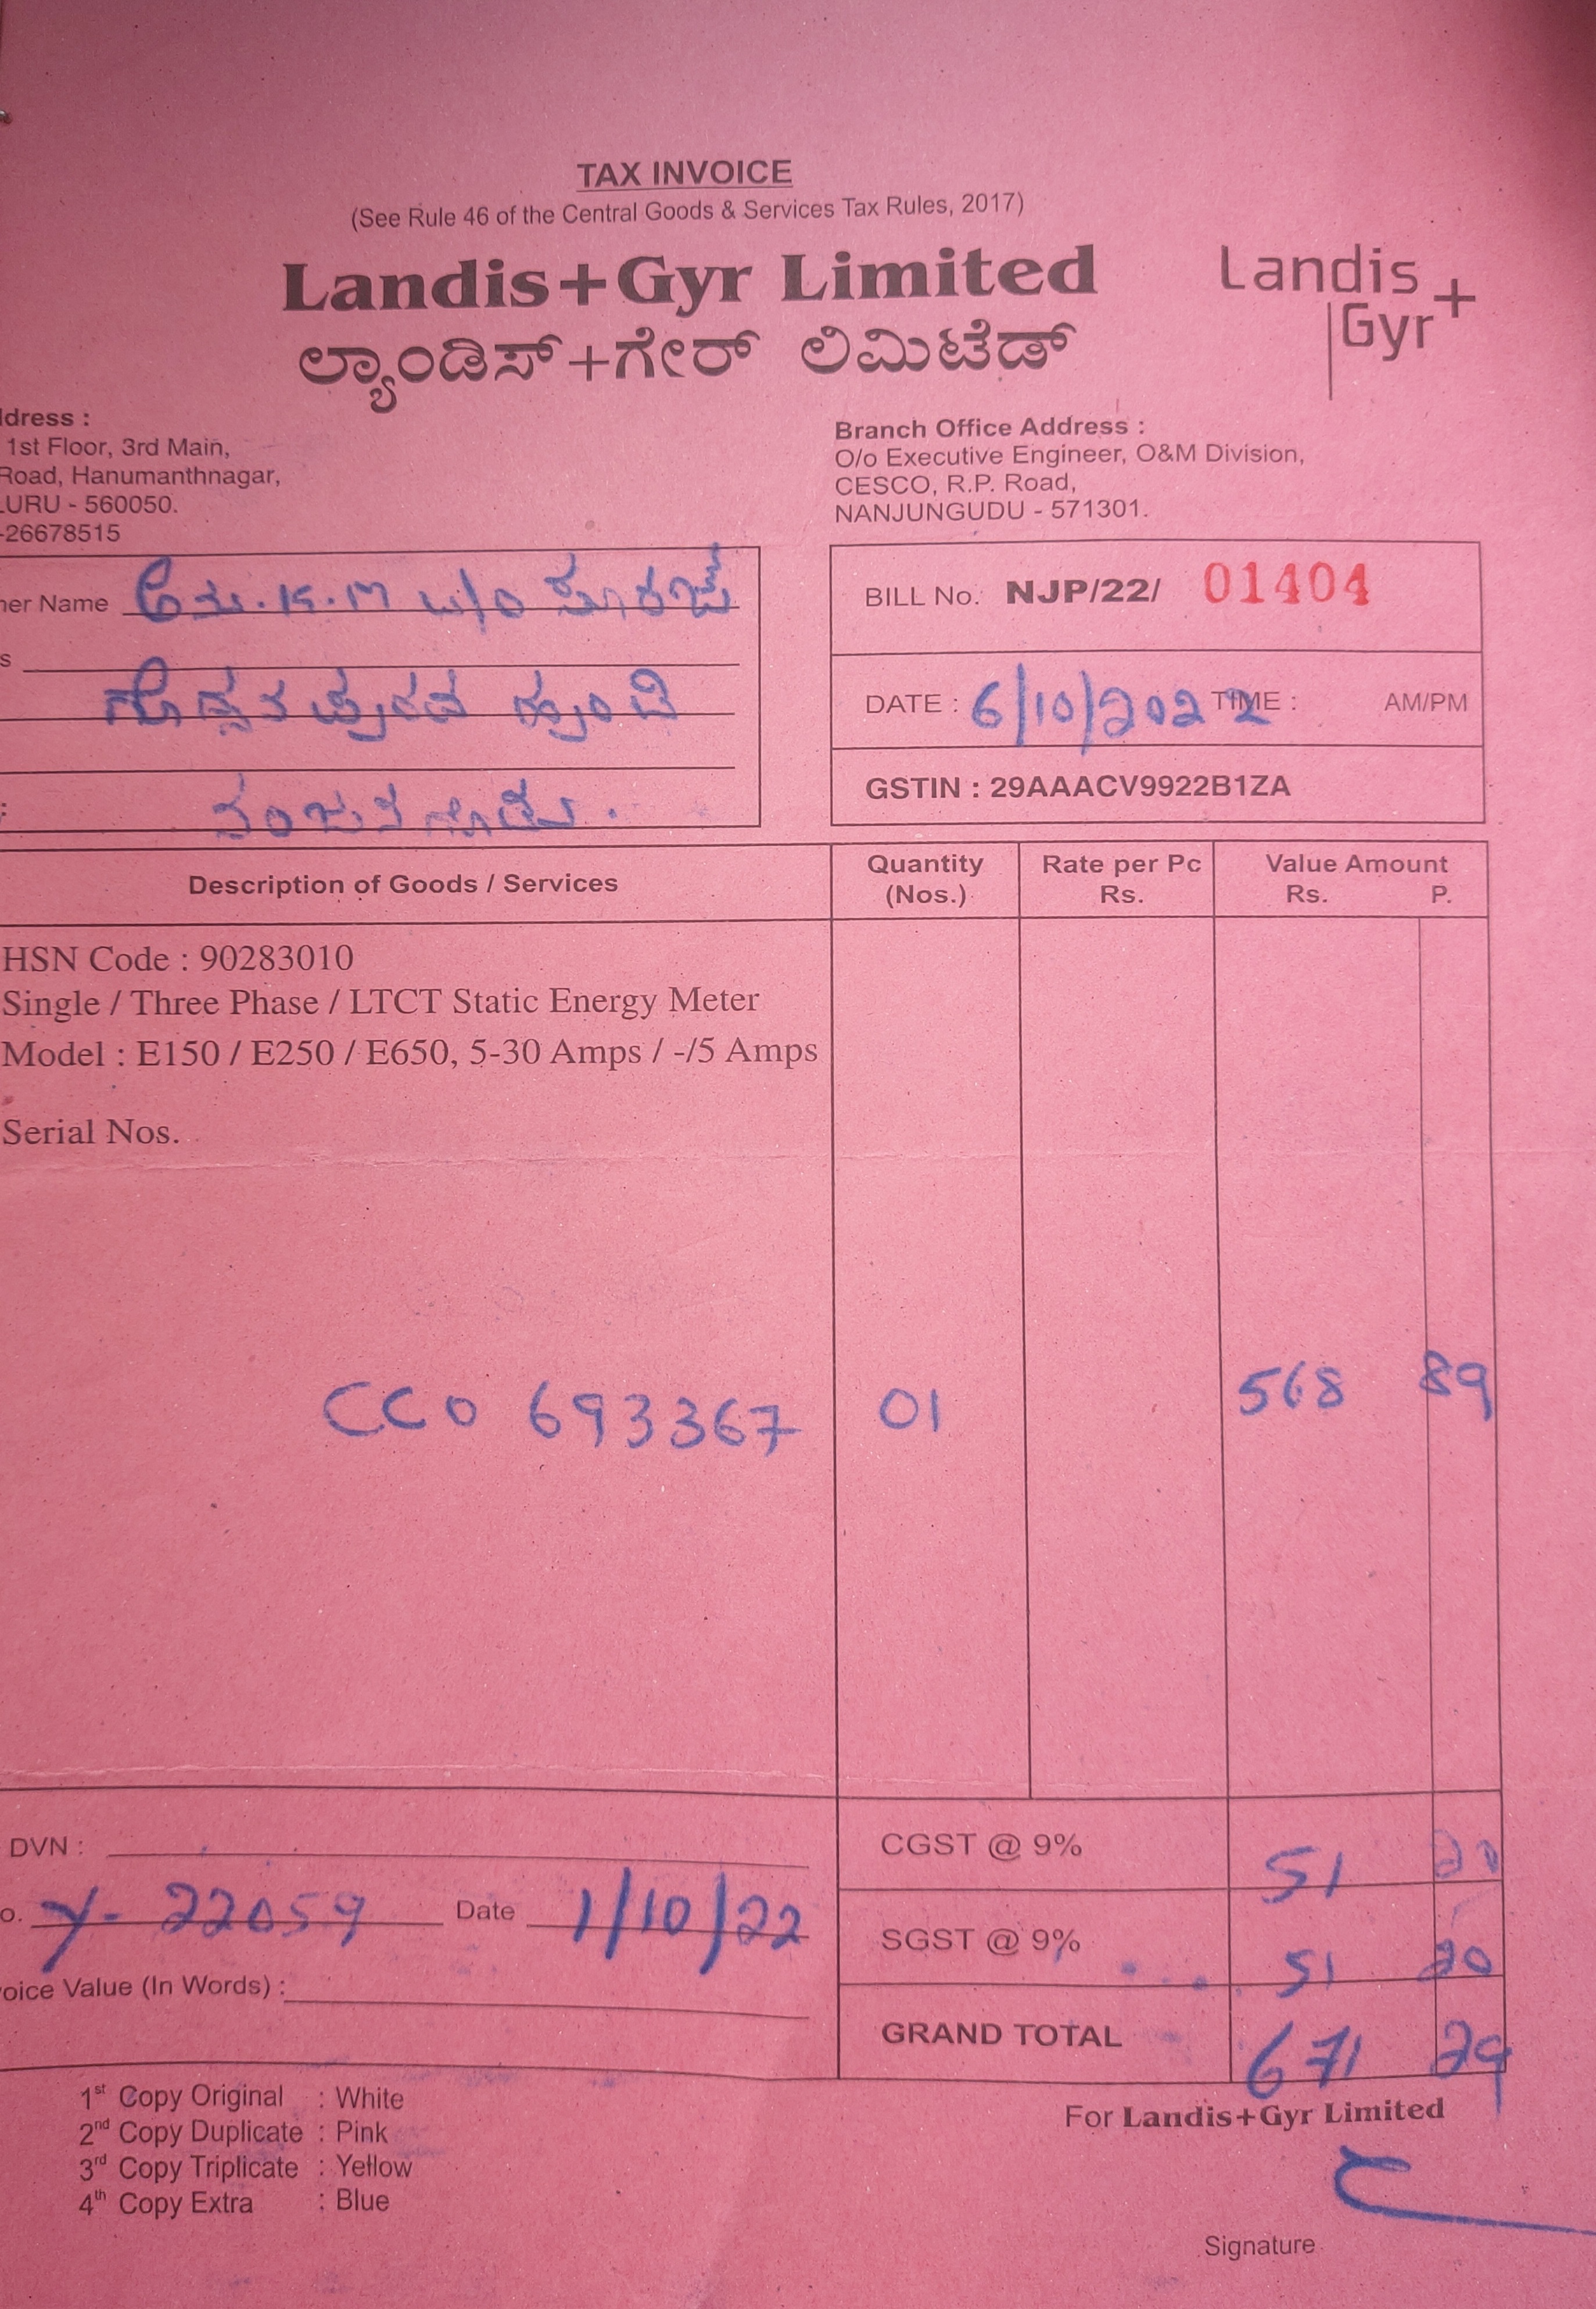 TAX INVOICE
(See Rule 46 of the Central Goods & Services Tax Rules, 2017)
Landis+Gyr Limited
ಲ್ಯಾಂಡಿಸ್+ಗೇರ್ ಲಿಮಿಟೆಡ್
Landis+
Gyr
ddress :
1st Floor, 3rd Main,
Road, Hanumanthnagar,
LURU - 560050.
-26678515
Branch Office Address :
O/o Executive Engineer, O&M Division,
CESCO, R.P. Road,
NANJUNGUDU - 571301.
ner Name
s
:
BILL No. NJP/22/ 01404
DATE : 6/10/2022 TIME : AM/PM
GSTIN : 29AAACV9922B1ZA
Description of Goods / Services Quantity (Nos.) Rate per Pc Rs. Value Amount Rs. P.
HSN Code : 90283010
Single / Three Phase / LTCT Static Energy Meter
Model : E150 / E250 / E650, 5-30 Amps / -/5 Amps
Serial Nos.
CCO 693367 01 568 89
DVN :
CGST @ 9% 51 20
o. Y- 22059 Date 1/10/22
SGST @ 9% 51 20
oice Value (In Words) :
GRAND TOTAL 671 29
1st Copy Original : White
2nd Copy Duplicate : Pink
3rd Copy Triplicate : Yellow
4th Copy Extra : Blue
For Landis+Gyr Limited
Signature